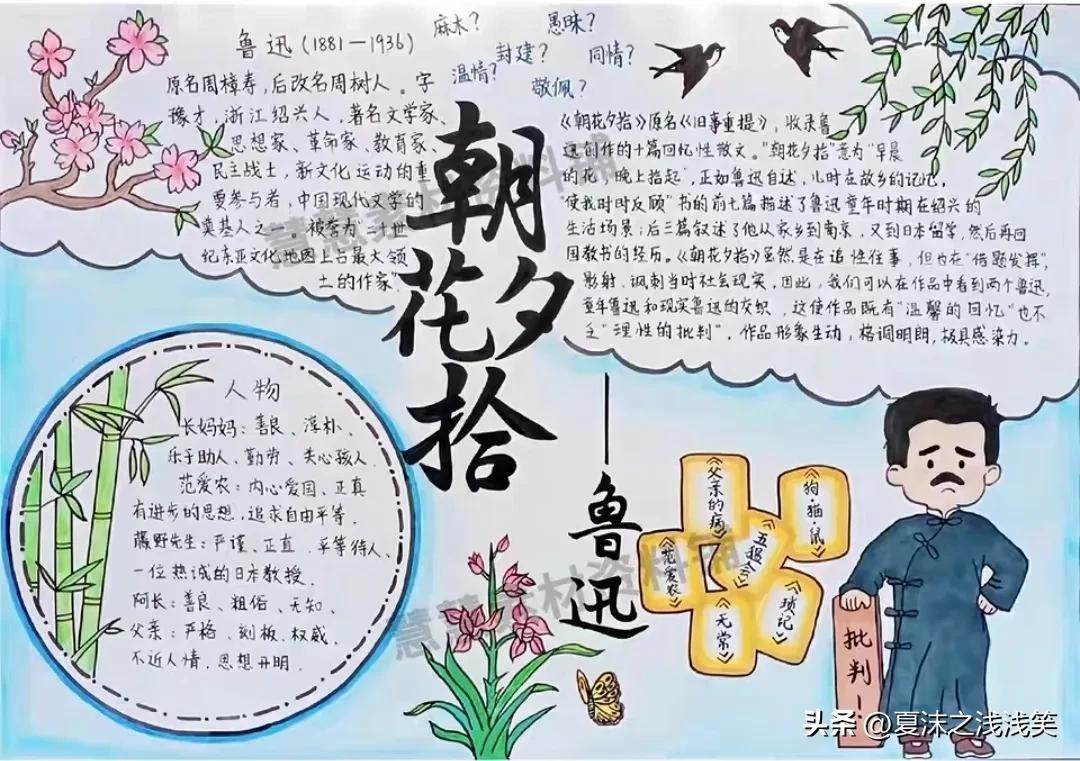 麻木?
愚昧?
封建?
同情?
温情?
敬佩?
鲁迅(1881—1936)
原名周樟寿,后改名周树人。字
豫才,浙江绍兴人,著名文学家、
思想家、革命家、教育家、
民主战士,新文化运动的重
要参与者,中国现代文学的
奠基人之一。被誉为"二十世
纪东亚文化地图上占最大领
土的作家"
朝花夕拾
——鲁迅
《朝花夕拾》原名《旧事重提》,收录鲁
迅创作的十篇回忆性散文。"朝花夕拾"意为"早晨
的花,晚上拾起",正如鲁迅自述,儿时在故乡的记忆,
"使我时时反顾"书的前七篇描述了鲁迅童年时期在绍兴的
生活场景;后三篇叙述了他从家乡到南京,又到日本留学,然后再回
国教书的经历。《朝花夕拾》虽然是在追性往事,但也在"借题发挥",
影射、讽刺当时社会现实,因此,我们可以在作品中看到两个鲁迅,
童年鲁迅和现实鲁迅的交织,这使作品既有"温馨的回忆"也不
乏"理性的批判",作品形象生动,格调明朗,极具感染力。
人物
长妈妈:善良、淳朴、
乐于助人、勤劳、关心孩人
范爱农:内心爱国、正真
有进步的思想,追求自由平等.
藤野先生:严谨、正直、平等待人、
一位热诚的日本教授.
阿长:善良、粗俗、无知、
父亲:严格、刻板、权威、
不近人情,思想开明.
《父亲的病》
《狗·猫·鼠》
《五猖会》
《范爱农》
《无常》
《琐记》
批判!
慧慧素材资料铺
慧慧素材资料铺
头条 @夏沫之浅浅笑